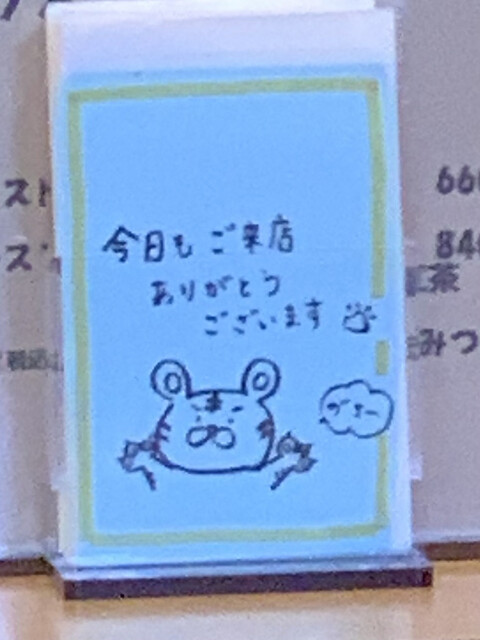 今日も ご来店
ありがとう
ございます
ガオー
スト
660
ス
840
紅茶
みつ